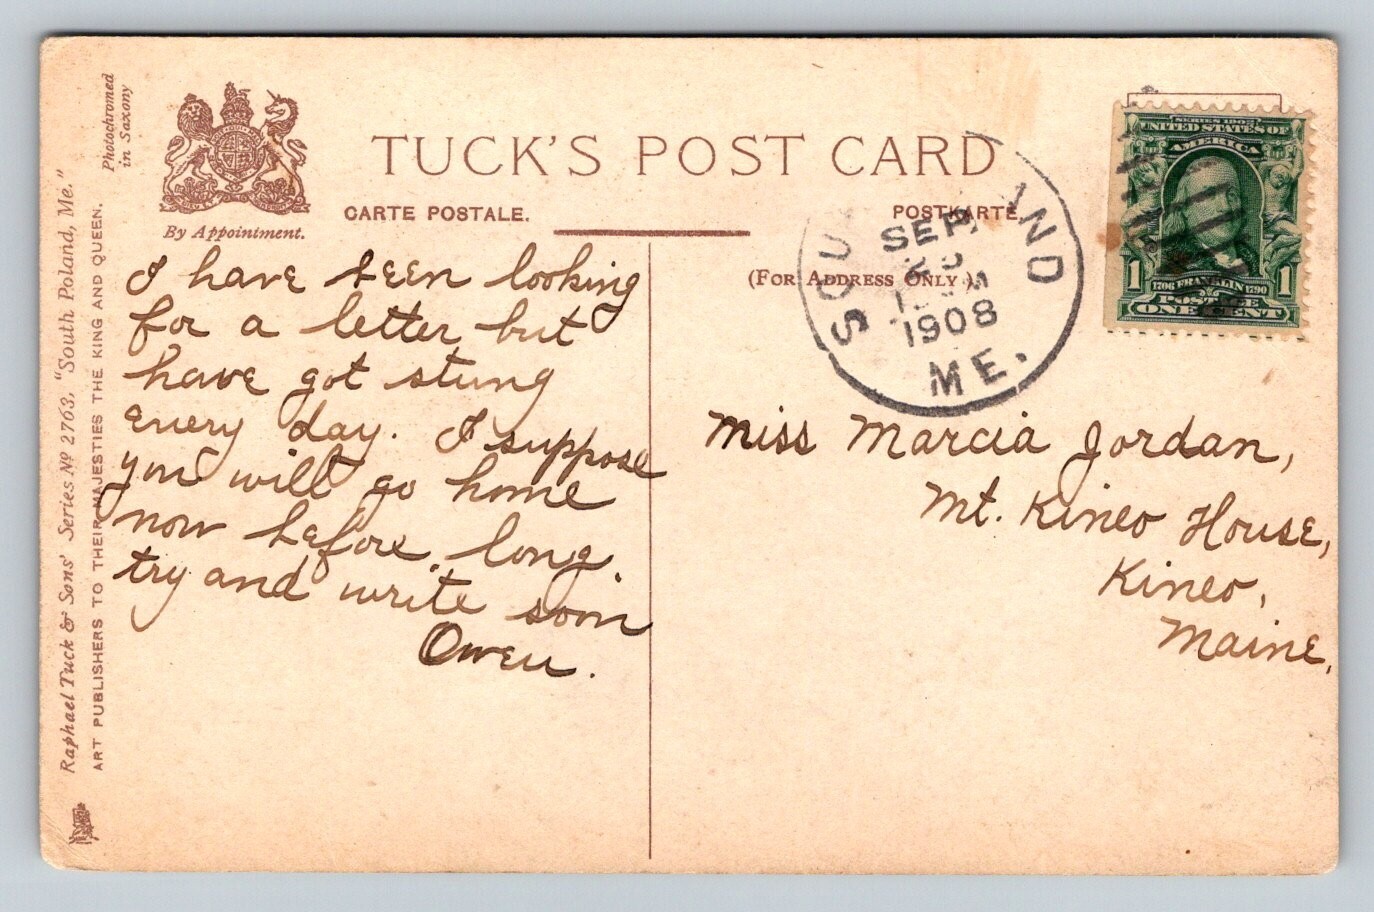 Photochromed
in Saxony
Raphael Tuck & Sons' Series Nº 2763. "South Poland, Me."
ART PUBLISHERS TO THEIR MAJESTIES THE KING AND QUEEN.
By Appointment.
TUCK'S POST CARD
CARTE POSTALE.
POSTKARTE
(FOR ADDRESS ONLY)
SERIES 1902
UNITED STATES OF
AMERICA
1 1
1706 FRANKLIN 1790
POSTAGE
ONE CENT
SOU AND
SEP
1908
ME.
I have been looking
for a letter but
have got stung
every day. I suppose
you will go home
now before long.
try and write soon
Owen.
Miss Marcia Jordan,
Mt. Kineo House,
Kineo,
Maine,